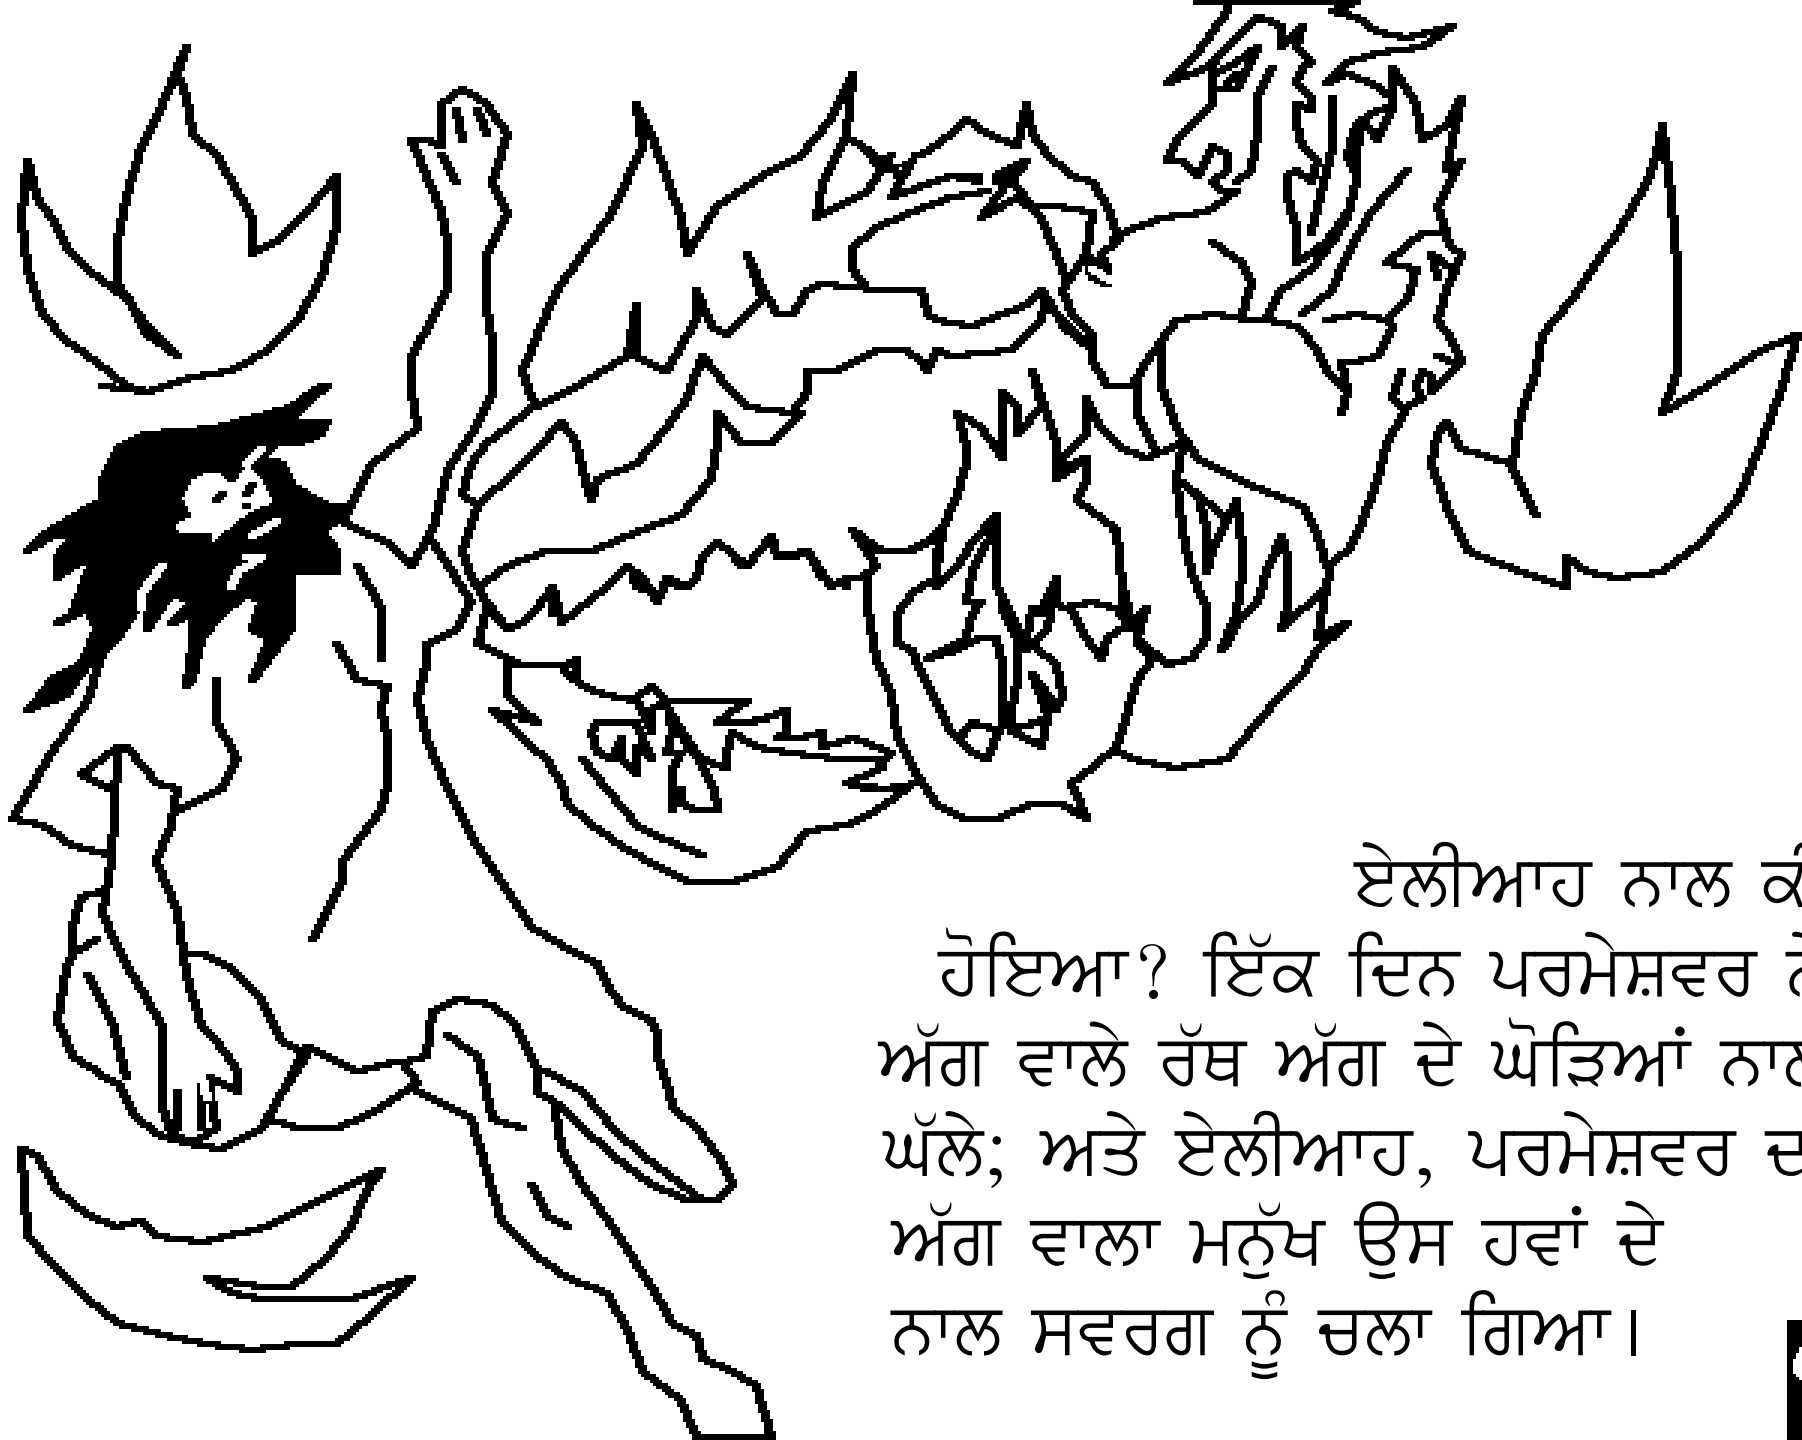 ਏਲੀਆਹ ਨਾਲ
ਹੋਇਆ? ਇੱਕ ਦਿਨ ਪਰਮੇਸ਼ਵਰ
ਅੱਗ ਵਾਲੇ ਰੱਥ ਅੱਗ ਦੇ ਘੋੜਿਆਂ ਨਾਲ
ਘੱਲੇ; ਅਤੇ ਏਲੀਆਹ, ਪਰਮੇਸ਼ਵਰ
ਅੱਗ ਵਾਲਾ ਮਨੁੱਖ ਉਸ ਹਵਾਂ ਦੇ
ਨਾਲ ਸਵਰਗ ਨੂੰ ਚਲਾ ਗਿਆ।